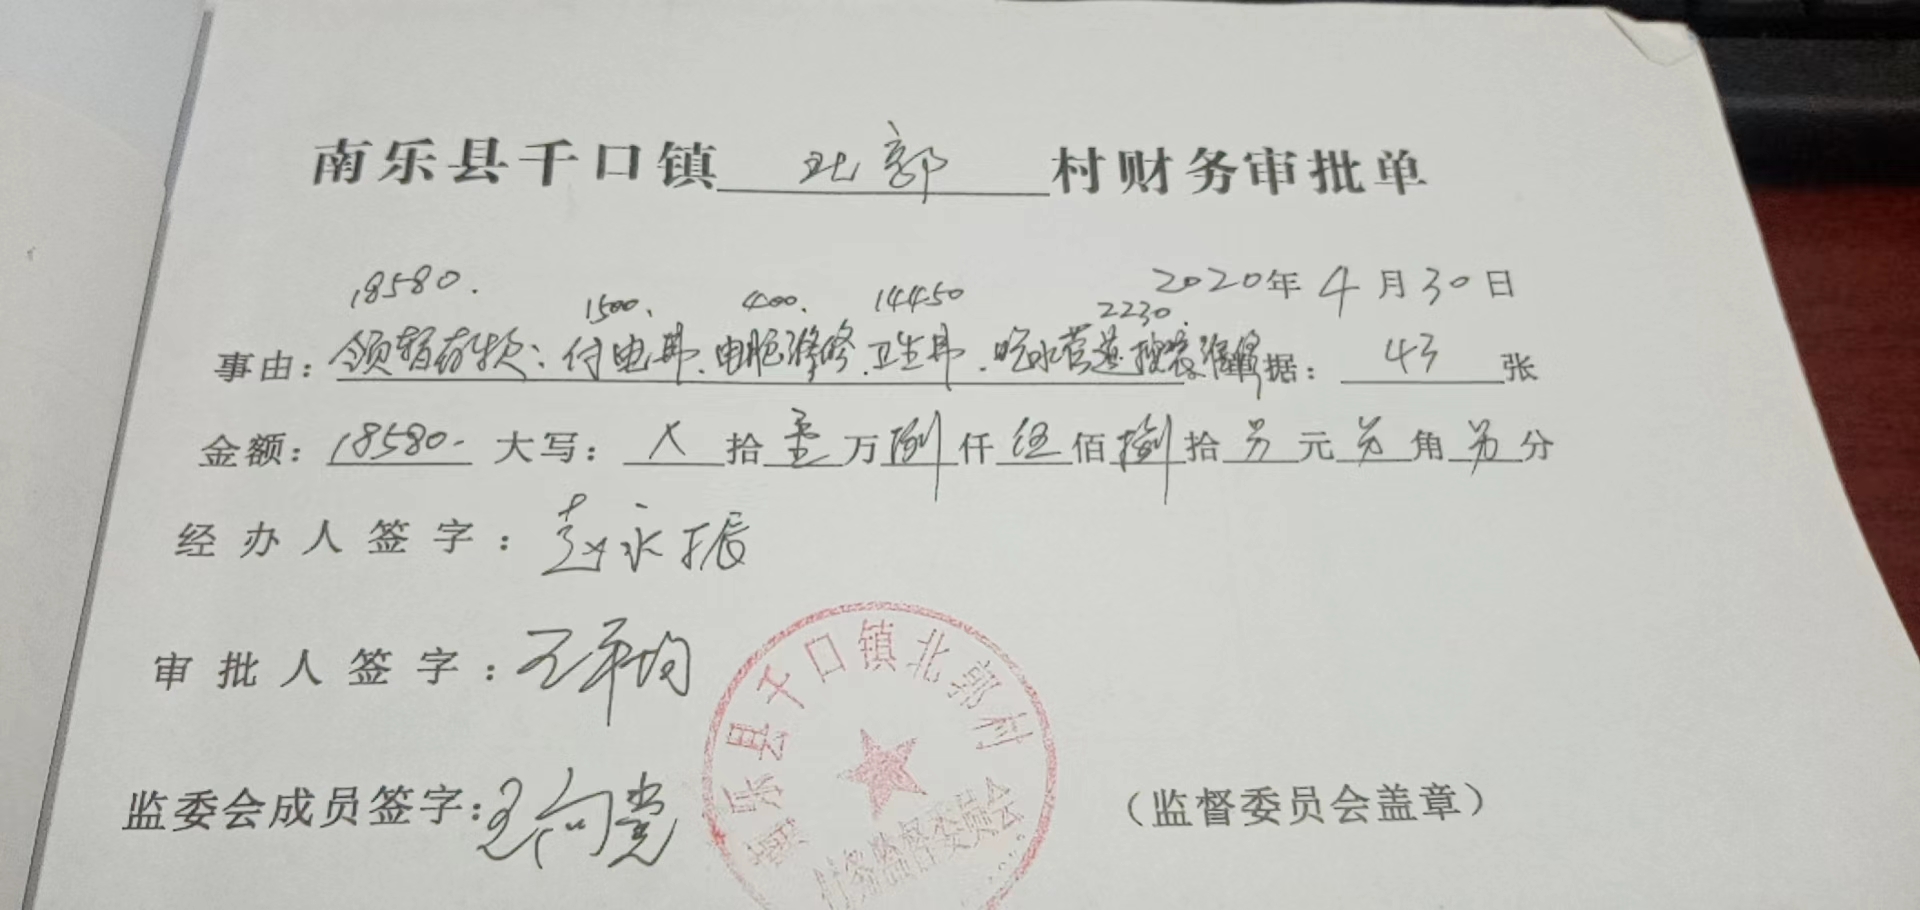 南乐县千口镇 北郭 村财务审批单
2020年4月30日
18580. 1500. 400. 14450 2230.
事由：领暂存款：付电费、电脑维修、卫生费、吃水管道 维修 据： 43 张
金额：18580- 大写： 乂 拾 壹 万 捌 仟 伍 佰 捌 拾 另 元 另 角 另 分
经办人签字：赵永振
审批人签字：王平均
监委会成员签字：王向党
（监督委员会盖章）
南乐县千口镇北郭村
村务监督委员会